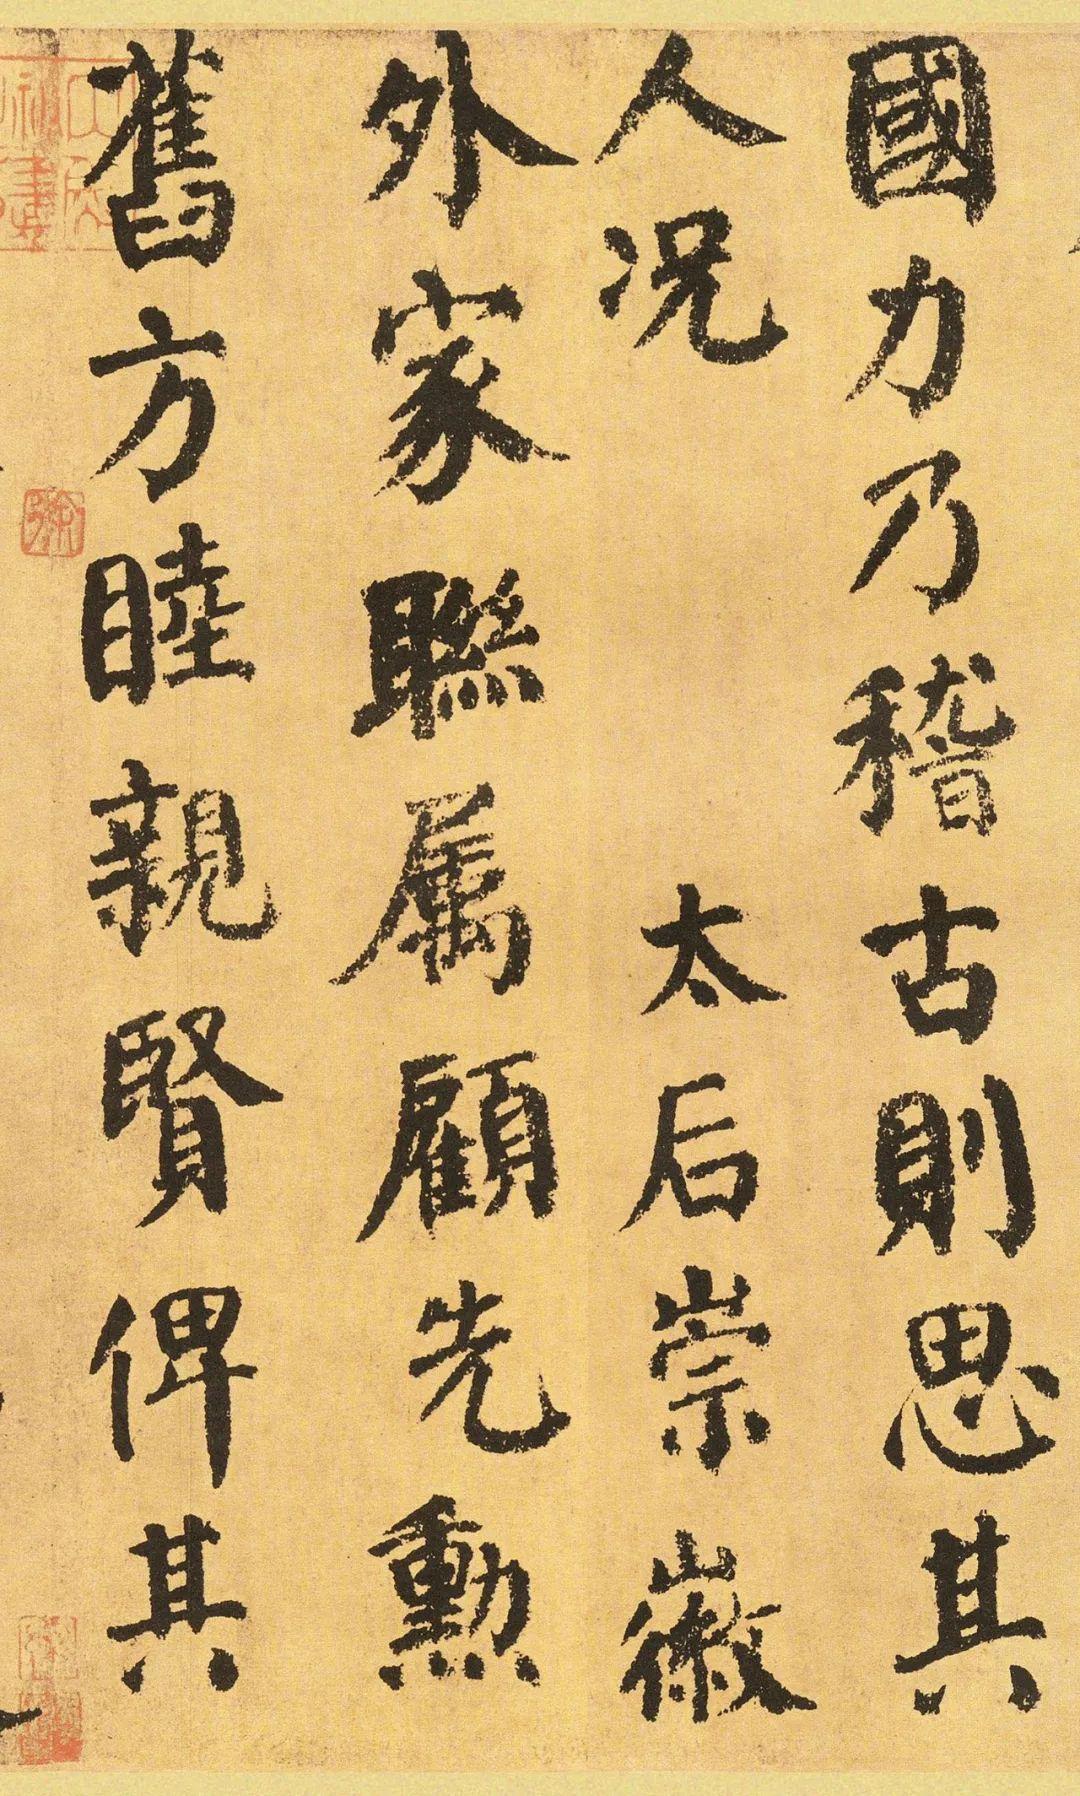 國力乃稽古則思其
人況 太后崇徽
外家聯屬顧先勳
舊方睦親賢俾其